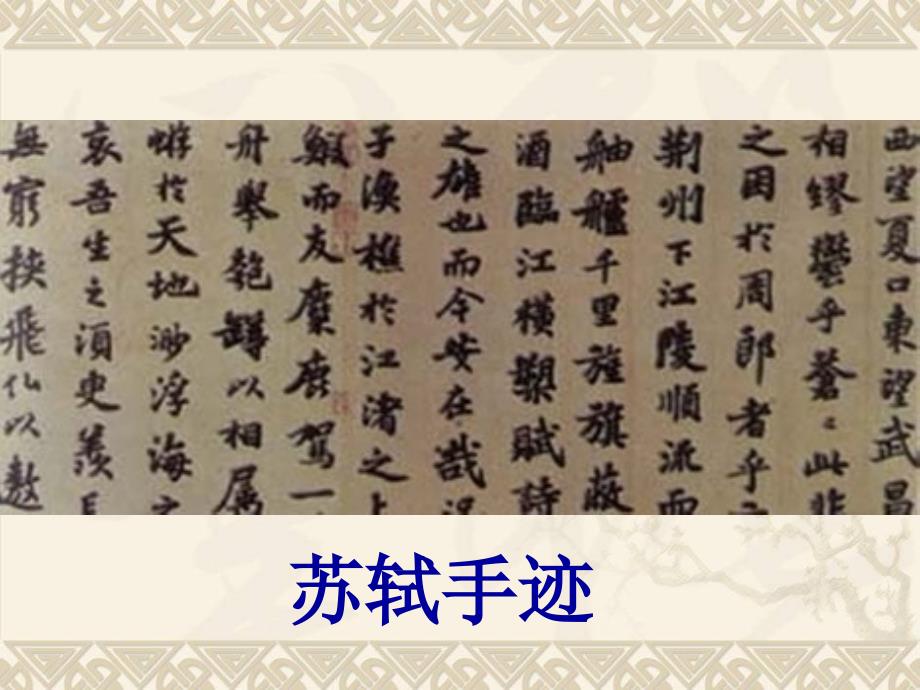 西望夏口東望武昌
相繆鬱乎蒼〻此非
之困於周郎者乎
荆州下江陵順流而
舳艫千里旌旗蔽
酒臨江橫槊賦詩
之雄也而今安在哉況
子漁樵於江渚之上
鰕而友麋鹿駕一
舟舉匏罇以相属
蝣於天地渺浮海之
哀吾生之須臾羨長
無窮挾飛仙以遨
苏轼手迹